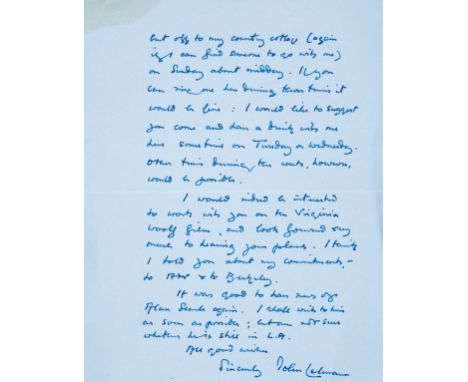 but off to my country cottage (again
if I can find someone to go with me)
on Sunday about midday. If you
can ring me here during these times it
would be fine: I would like to suggest
you come and have a drink with me
here sometime on Tuesday or Wednesday.
Other times during the week, however,
would be possible.
I would indeed be interested
to work with you on the Virginia
Woolf film, and look forward very
much to hearing your plans. I think
I told you about my commitments -
to & to Berkeley.
It was good to have news of
Alan Searle again. I shall write to him
as soon as possible; but am not sure
whether he is still in L.A.
All good wishes
Sincerely John Lehmann